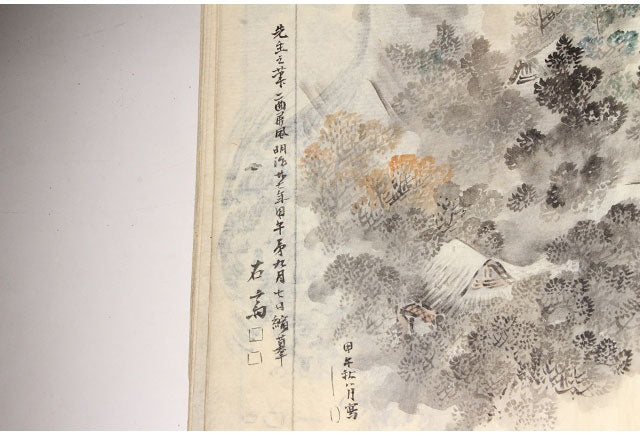 先生之筆二曲屏風明治廿七年甲午第九月七日縮摹
右
甲午秋八月寫